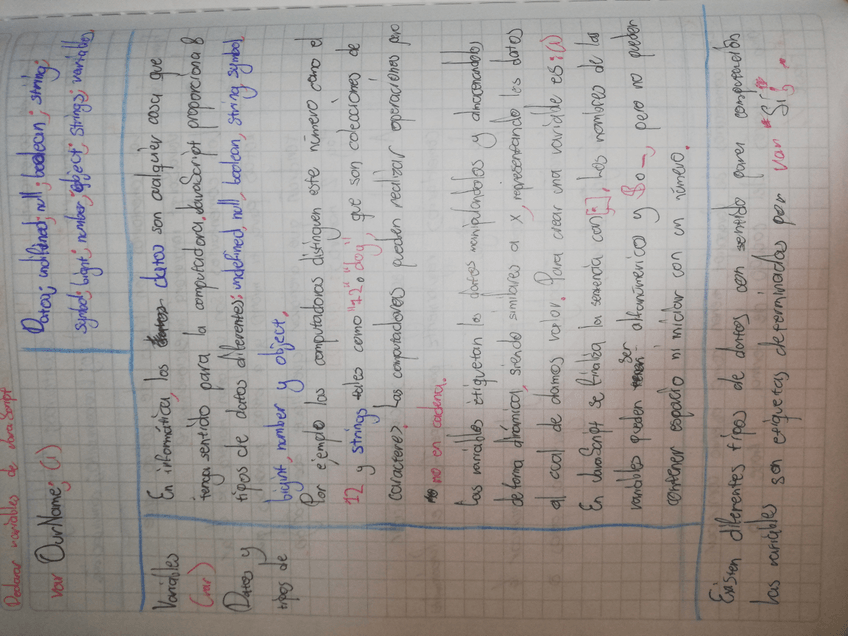 Declarar variables de JavaScript
var OurName; (1)
Datos; undifined; null; boolean; string;
symbol; bigint; number; object; strings; variables
Variables
(var)
Datos y
tipos de
En informática, los datos son cualquier cosa que
tenga sentido para la computadora. JavaScript proporciona 8
tipos de datos diferentes: undefined, null, boolean, string, symbol,
bigint, number y object.
Por ejemplo las computadoras distinguen este número como el
12 y strings tales como "12" o "day", que son colecciones de
caracteres. Las computadoras pueden realizar operaciones pero
no en cadena.
Las variables etiquetan los datos manipulandolos y almacenandolos
de forma dinámica, siendo similares a X, representando los datos
al cual le damos valor. Para crear una variable es: (1)
En JavaScript se finaliza la sentencia con [;]. Los nombres de las
variables pueden ser alfanúmericos y $ o _, pero no pueden
contener espacio ni iniciar con un número.
Existen diferentes tipos de datos con sentido para computación
Las variables son etiquetas determinadas por var